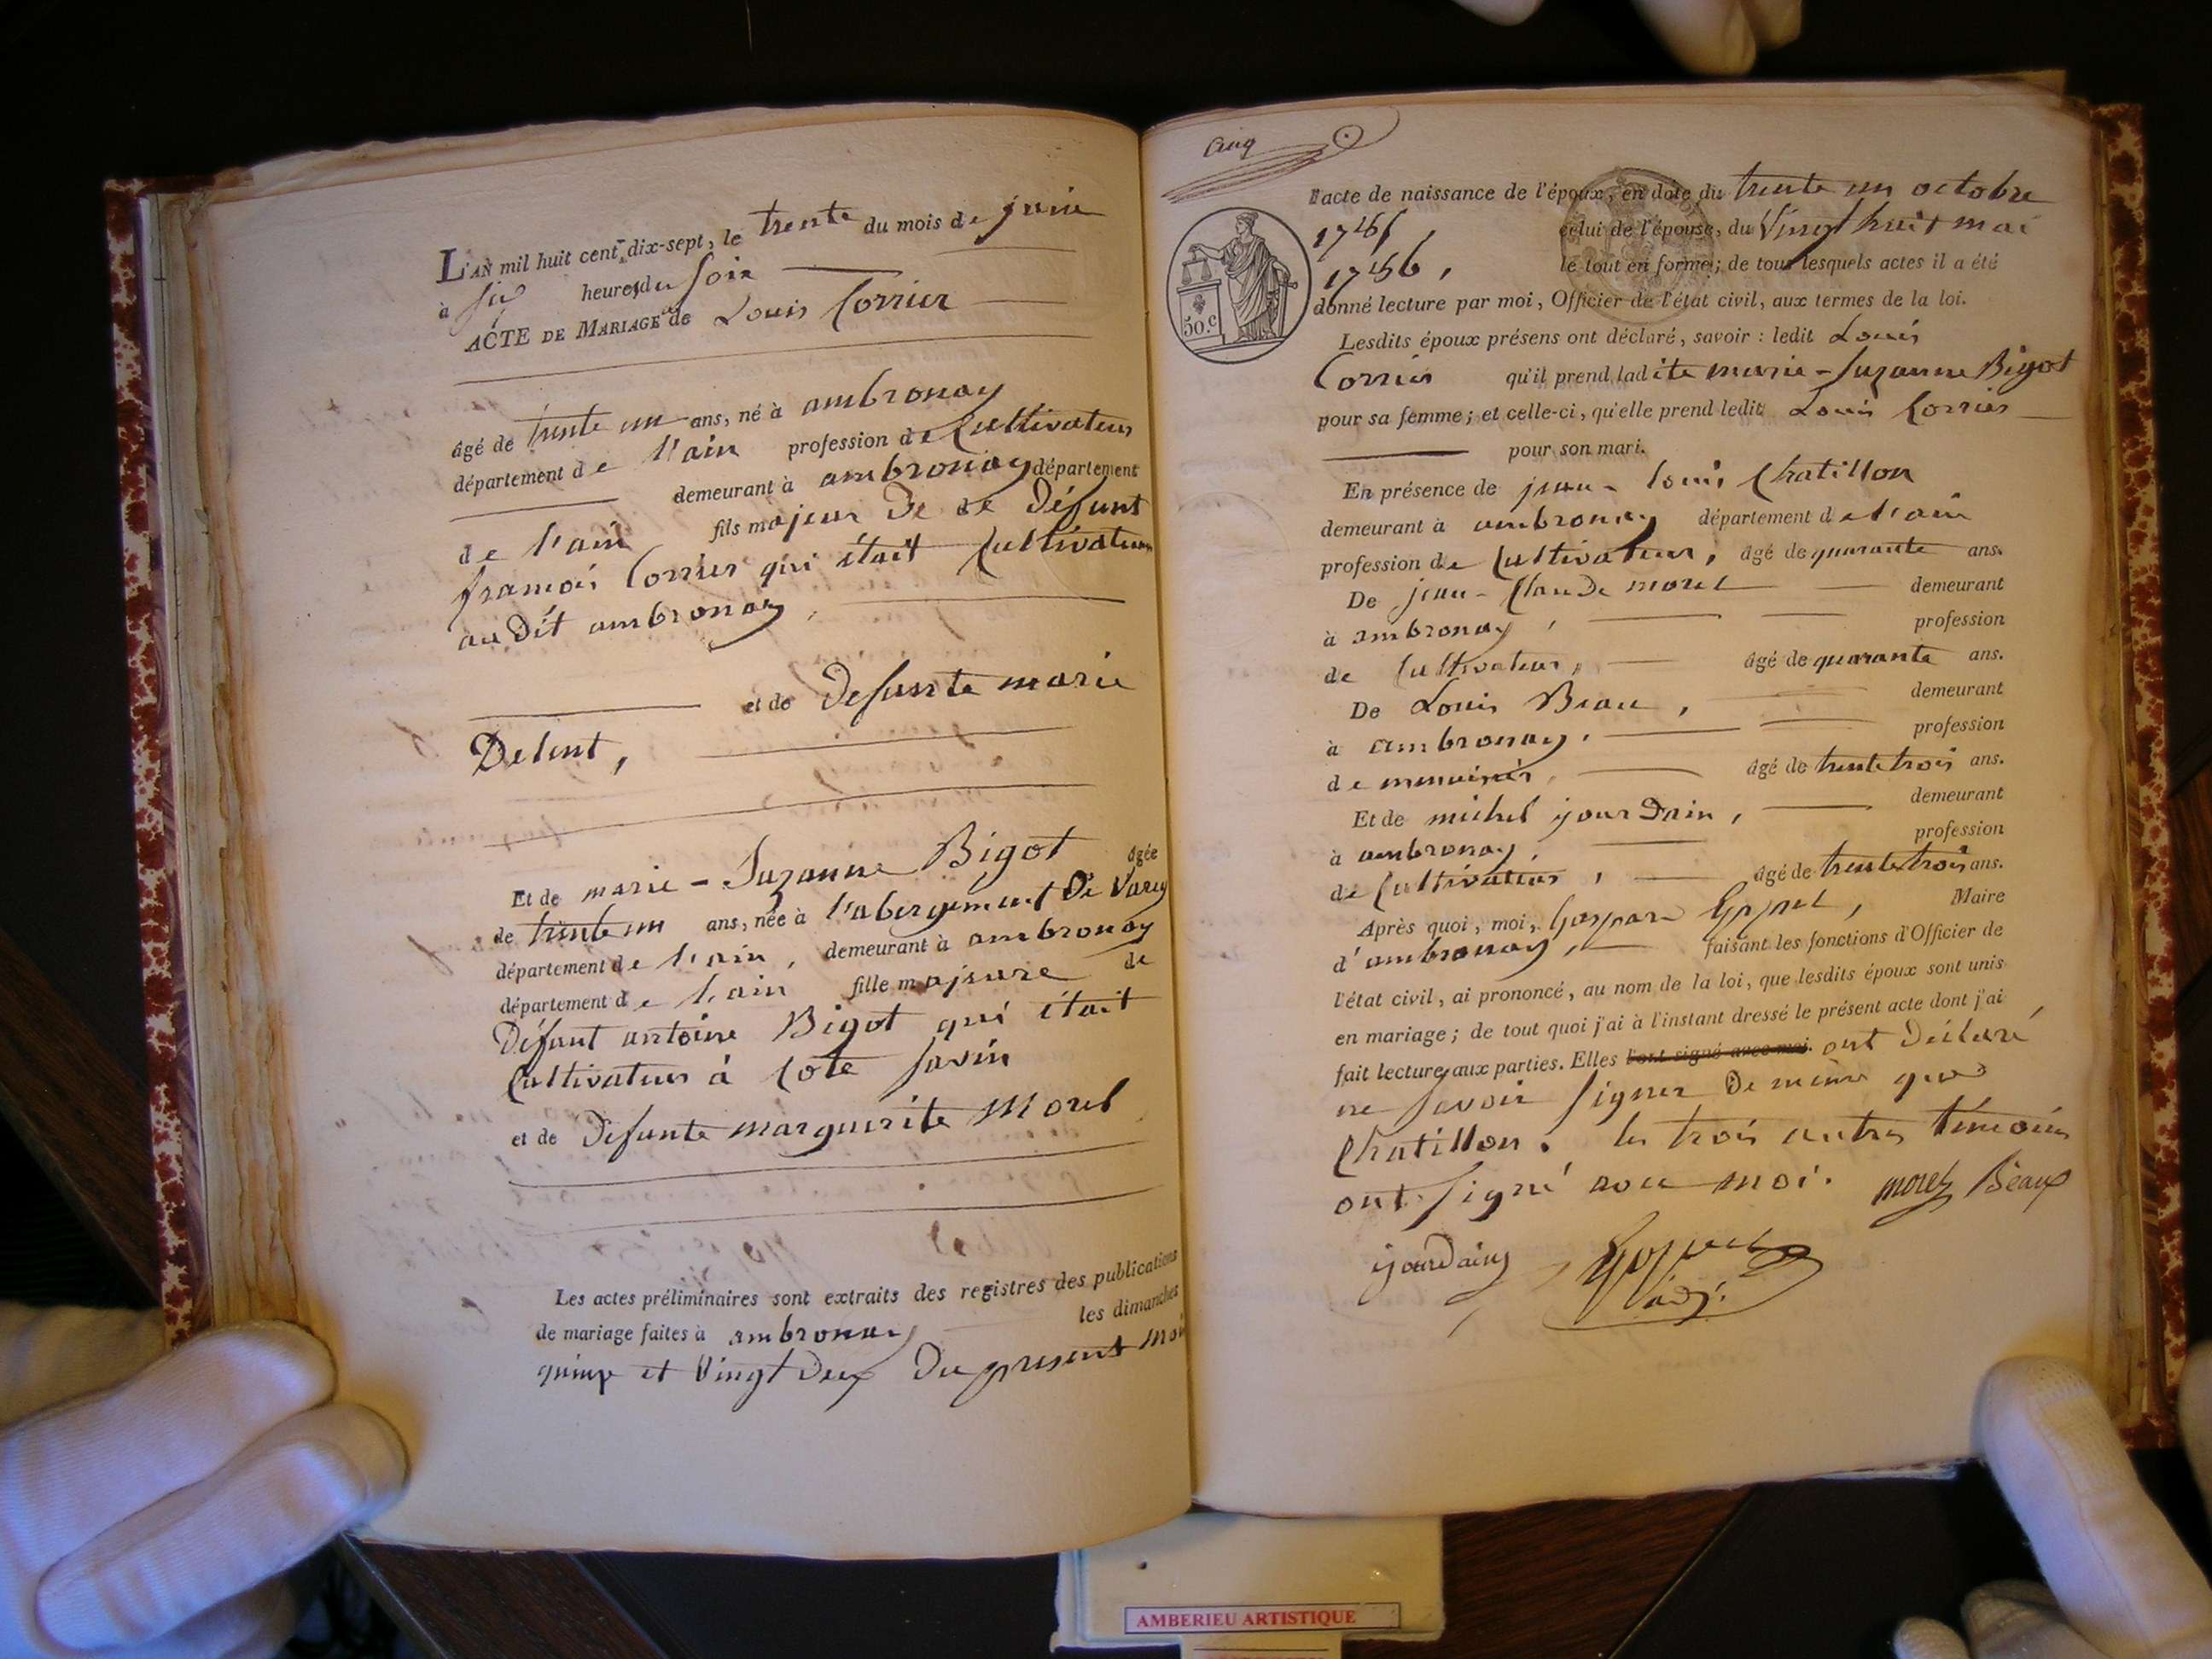 L'AN mil huit cent dix-sept, le trente du mois de juin
à six heures du soir
ACTE DE MARIAGE de Louis Corrier
âgé de trente un ans, né à ambronay
département de l'ain profession de Cultivateur
demeurant à ambronay département
de l'ain fils majeur De de Défunt
francois Corrier qui était Cultivateur
au Dit ambronay,
et de Defunte marie
Delent,
Et de marie - Suzanne Bigot âgée
de trente un ans, née à l'abergement De Varey
département de l'ain, demeurant à ambronay
département de l'ain fille majeure de
Défunt antoine Bigot qui était
Cultivateur à Cote Savin
et de Defunte marguerite Morel
Les actes préliminaires sont extraits des registres des publications
de mariage faites à ambronay les dimanches
quinze et Vingt Deux Du present moi
Cinq
l'acte de naissance de l'époux, en date du trente un octobre
celui de l'épouse, du Vingt huit mai
le tout en forme; de tous lesquels actes il a été
50.c
donné lecture par moi, Officier de l'état civil, aux termes de la loi.
Lesdits époux présens ont déclaré, savoir : ledit Louis
Corrier qu'il prend ladite marie-Suzanne Bigot
pour sa femme; et celle-ci, qu'elle prend ledit Louis Corrier
pour son mari.
En présence de jean - louis Chatillon
demeurant à ambronay département de l'ain
profession de Cultivateur, âgé de quarante ans.
De jean - Claude morel demeurant
à ambronay, profession
de Cultivateur, âgé de quarante ans.
De Louis Beau, demeurant
à ambronay, profession
de menuisier, âgé de trente trois ans.
Et de michel jourDain, demeurant
à ambronay, profession
de Cultivateur, âgé de trente trois ans.
Après quoi, moi, Gaspard Maire
d'ambronay, faisant les fonctions d'Officier de
l'état civil, ai prononcé, au nom de la loi, que lesdits époux sont unis
en mariage; de tout quoi j'ai à l'instant dressé le présent acte dont j'ai
fait lecture aux parties. Elles l'ont signé avec moi. ont Déclaré
ne Savoir Signer De même que
Chatillon. les trois autres témoins
ont Signé avec moi. morel Beaux
ijourDain
adj.
AMBERIEU ARTISTIQUE